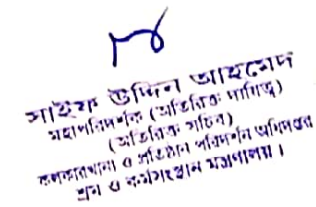 সাইফ উদ্দিন আহমেদ
মহাপরিদর্শক (অতিরিক্ত দায়িত্ব)
(অতিরিক্ত সচিব)
কলকারখানা ও প্রতিষ্ঠান পরিদর্শন অধিদপ্তর
শ্রম ও কর্মসংস্থান মন্ত্রণালয়।